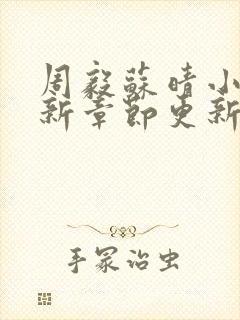 周毅蘇晴小
新章節更新
手冢治虫